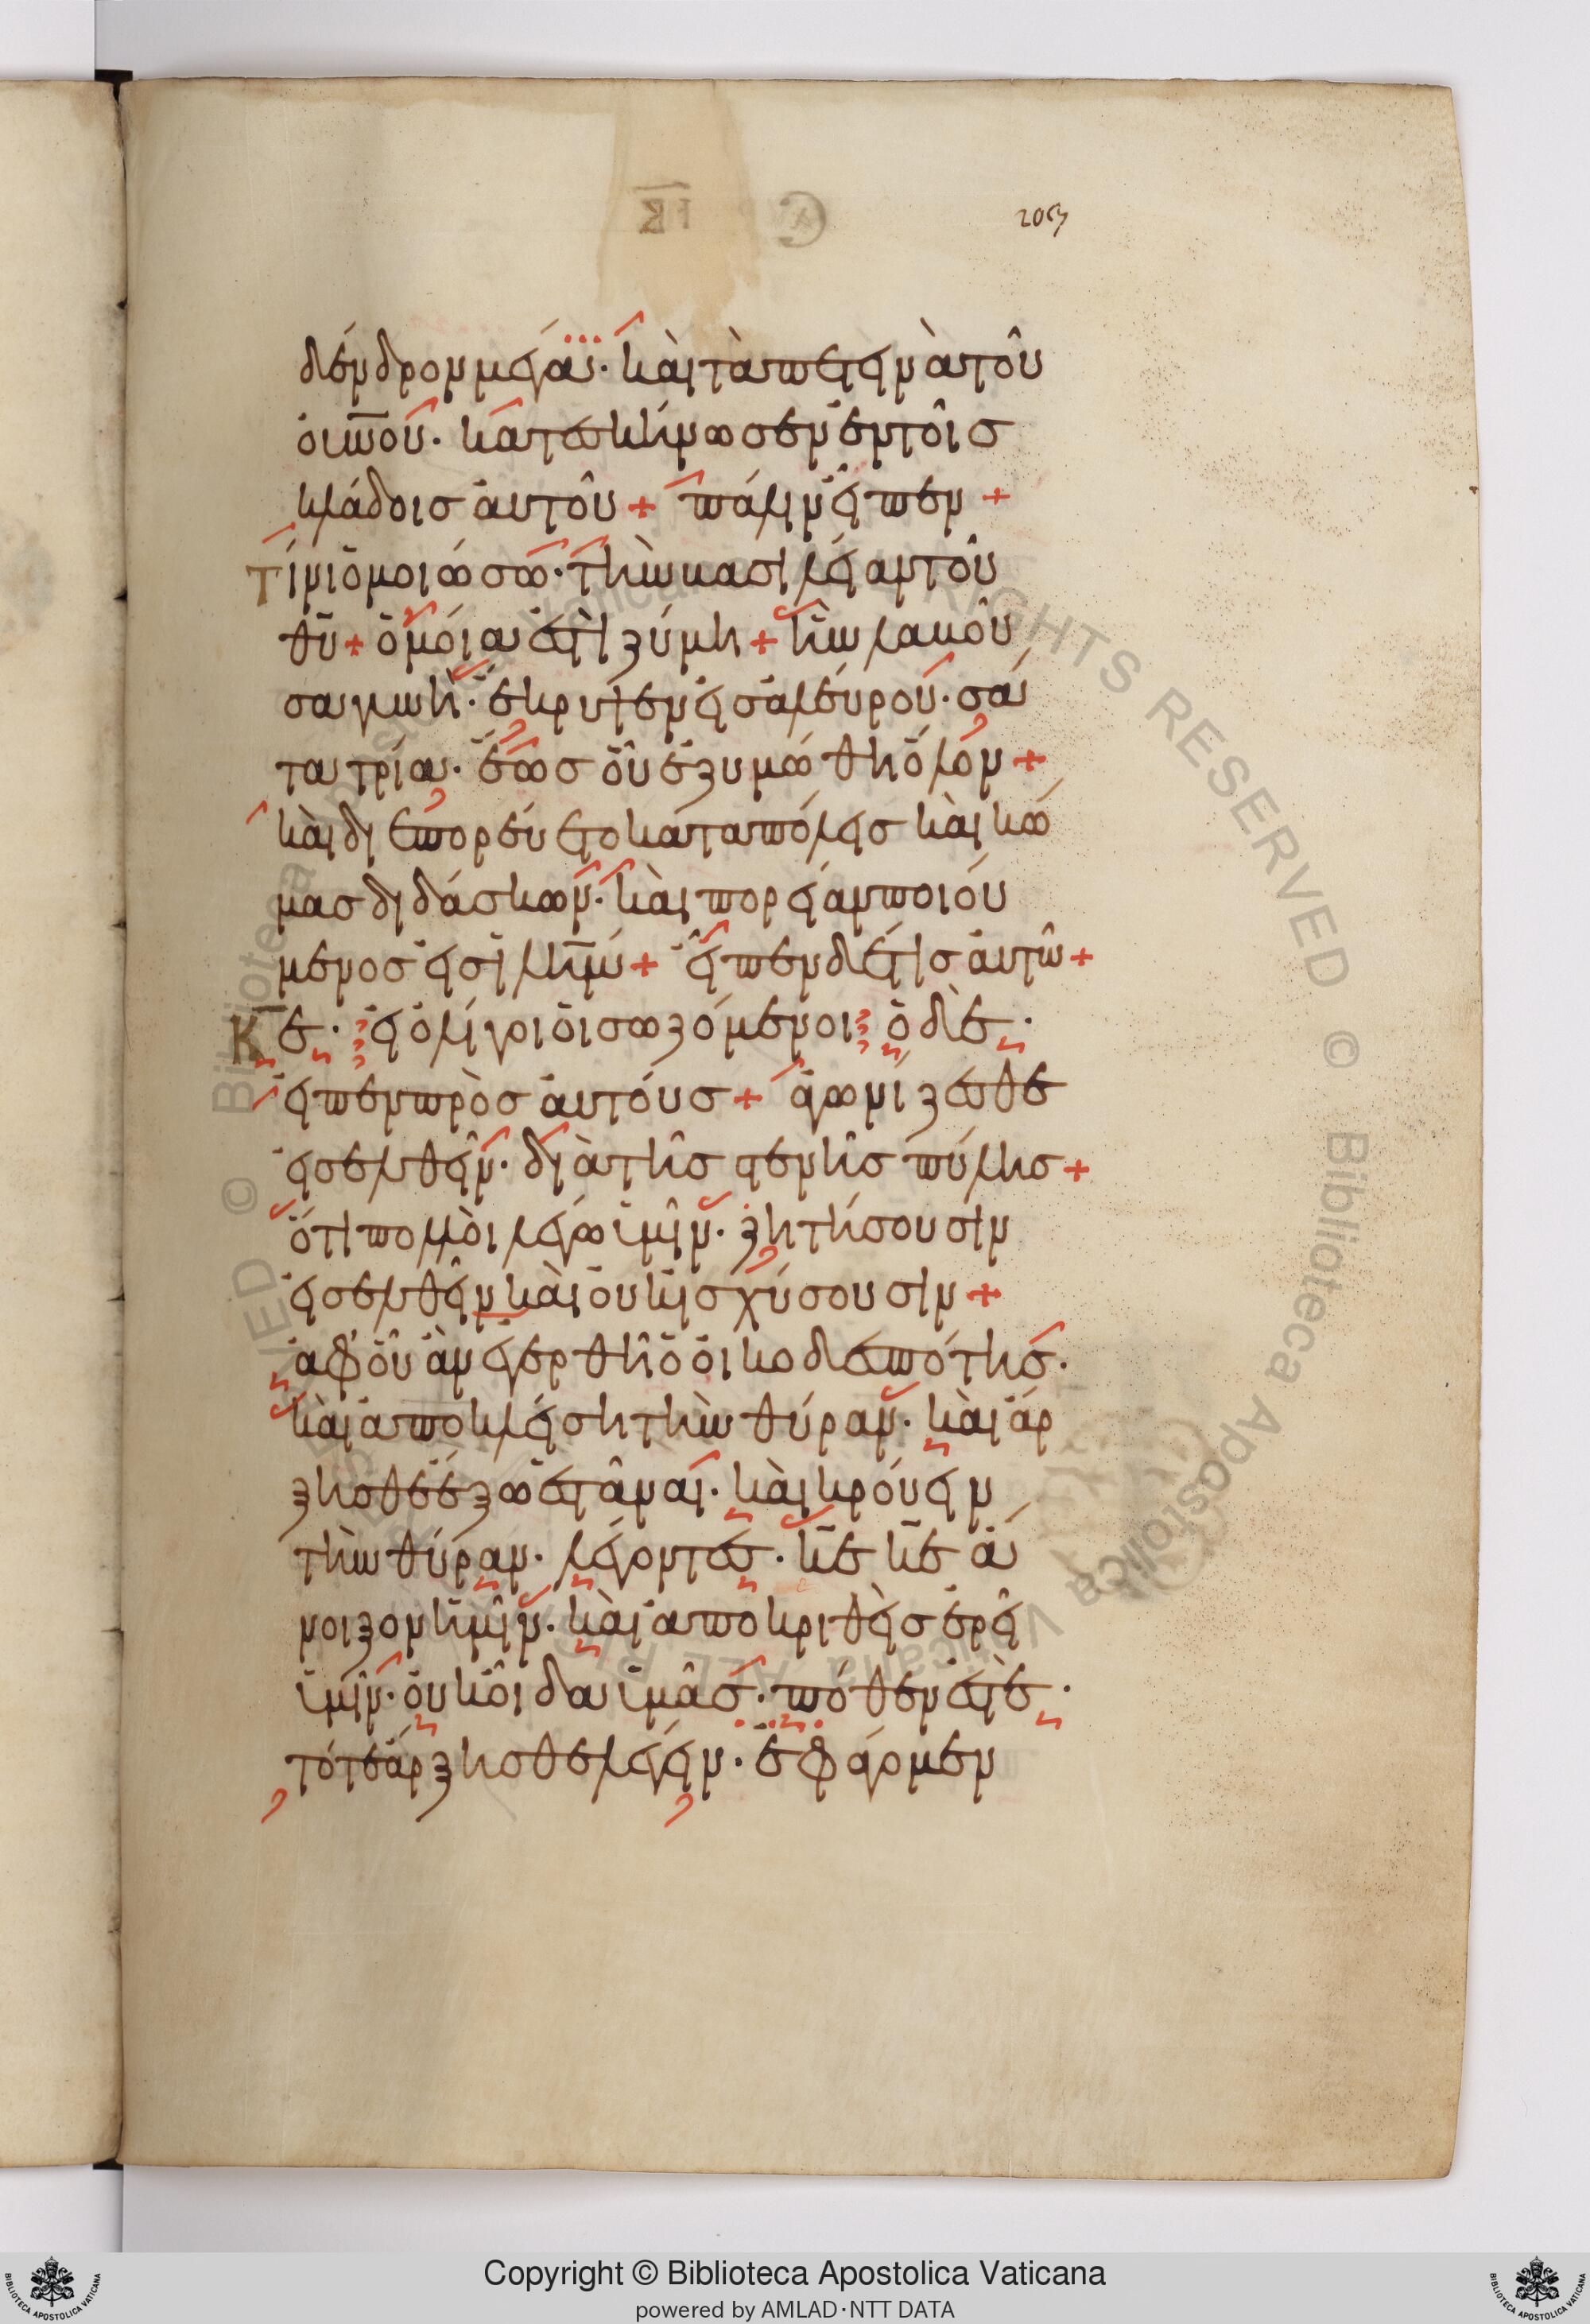 205
δένδρον μέγα· καὶ τὰ πετεινὰ τοῦ
οὐνοῦ· κατεσκήνωσεν ἐν τοῖσ
κλάδοισ αὐτοῦ + πάλιν εἶπεν +
Τίνι ὁμοιώσω· τὴν βασιλείαν τοῦ
θῦ + ὁμοία ἐστὶ ζύμη + ἣν λαβοῦ
σα γυνὴ· ἔκρυψεν εἰσ ἀλεύρου· σά
τα τρία· ἕωσ οὗ ἐζυμώθη ὅλον +
καὶ διεπορεύετο κατα πόλεισ καὶ κώ
μασ διδάσκων· καὶ πορείαν ποιού
μενοσ εἰσ ιλημ + εἶπεν δέ τισ αὐτῶ +
Κε· εἰ ὀλίγοι οἱ σωζόμενοι ὁ δὲ·
εἶπεν πρὸσ αὐτούσ + ἀγωνίζεσθε
εἰσελθεῖν· διὰ τῆσ στενῆσ πύλησ +
ὅτι πολλοὶ λέγω ὑμῖν· ζητήσουσιν
εἰσελθεῖν καὶ οὐκ ἰσχύσουσιν +
ἀφ' οὗ ἂν ἐγερθῆ ὁ οἰκοδεσπότησ·
καὶ ἀποκλείση τὴν θύραν· καὶ ἄρ
ξησθε ἔξω ἑστάναι· καὶ κρούειν
τὴν θύραν· λέγοντεσ· κε κε ἄ
νοιξον ἡμῖν· καὶ ἀποκριθεὶσ ἐρεῖ
ὑμῖν· οὐκ οἶδα ὑμᾶσ· πόθεν ἐστὲ·
τότε ἄρξησθε λέγειν· ἐφάγομεν
Copyright © Biblioteca Apostolica Vaticana
powered by AMLAD·NTT DATA